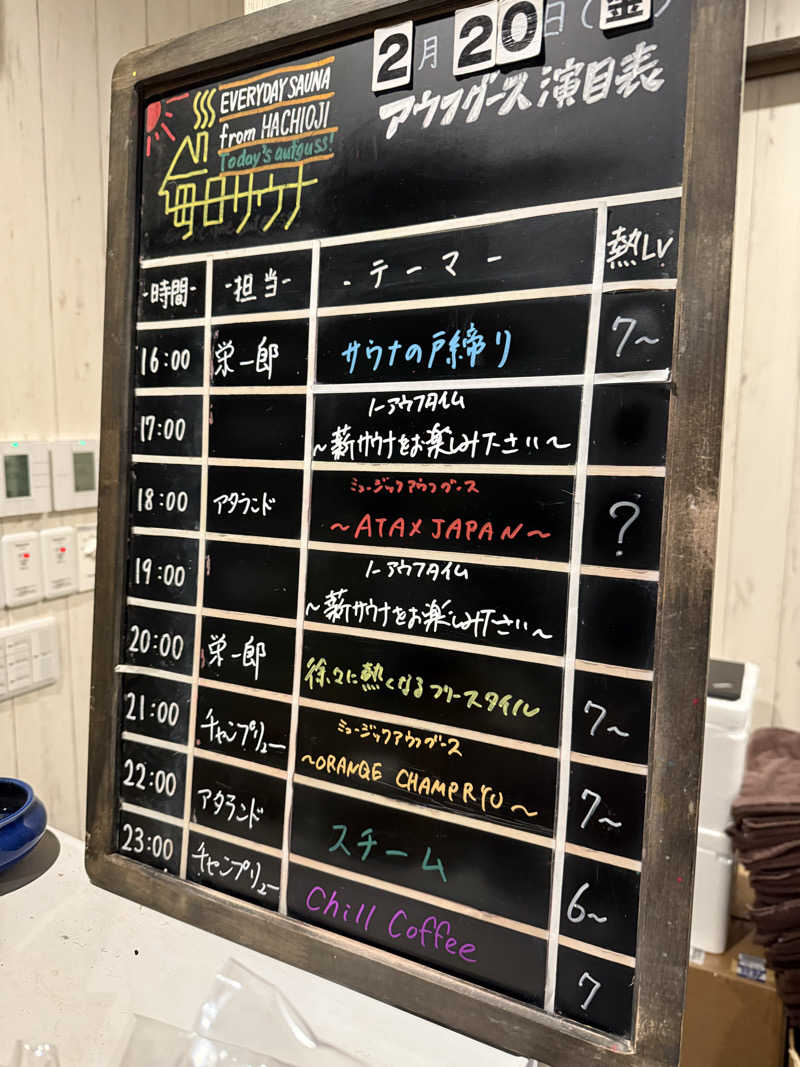 2月20日(金)
アウフグース演目表
EVERYDAY SAUNA
from HACHIOJI
Today's aufguss!
毎日サウナ
-時間- -担当- -テーマ- 熱LV
16:00 栄一郎 サウナの戸締り 7~
17:00 ノーアウフタイム
~薪サウナをお楽しみ下さい~
18:00 アタランド ミュージックアウフグース
~ATAXJAPAN~ ?
19:00 ノーアウフタイム
~薪サウナをお楽しみ下さい~
20:00 栄一郎 徐々に熱くなるフリースタイル 7~
21:00 チャンプリュー ミュージックアウフグース
~ORANGE CHAMPRYU~ 7~
22:00 アタランド スチーム 6~
23:00 チャンプリュー Chill Coffee 7